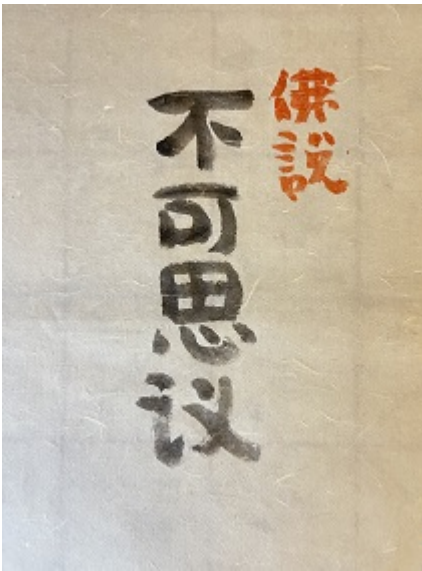 佛説
不可思议